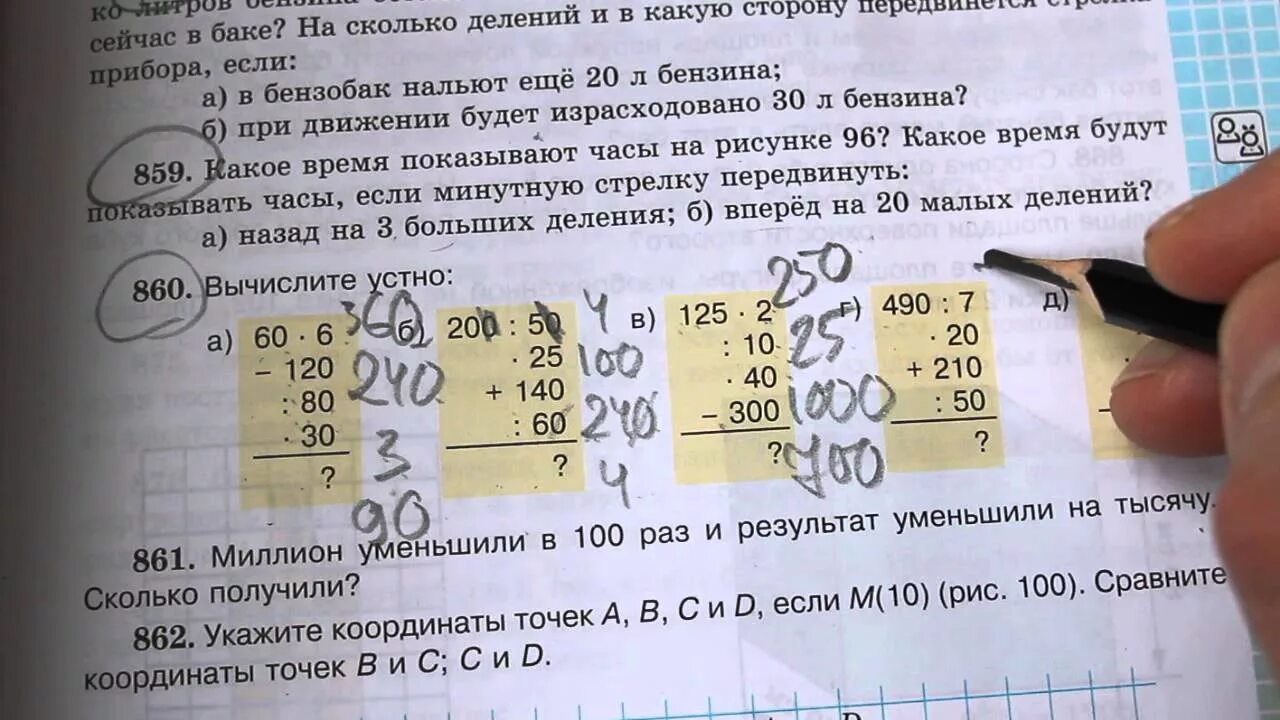 ко литров бензина
сейчас в баке? На сколько делений и в какую сторону передвинется стрелка
прибора, если:
а) в бензобак нальют ещё 20 л бензина;
б) при движении будет израсходовано 30 л бензина?
859. Какое время показывают часы на рисунке 96? Какое время будут
показывать часы, если минутную стрелку передвинуть:
а) назад на 3 больших деления; б) вперёд на 20 малых делений?
860. Вычислите устно:
а) 60 · 6 360
– 120 240
: 80 3
· 30 90
?
б) 200 : 50 4
· 25 100
+ 140 240
: 60 4
?
в) 125 · 2 250
: 10 25
· 40 1000
– 300 700
?
г) 490 : 7
· 20
+ 210
: 50
?
д)
861. Миллион уменьшили в 100 раз и результат уменьшили на тысячу.
Сколько получили?
862. Укажите координаты точек A, B, C и D, если M(10) (рис. 100). Сравните
координаты точек B и C; C и D.